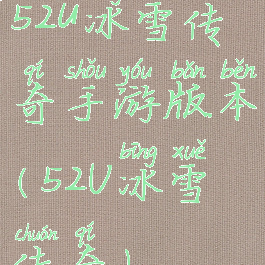 52U冰雪传
qí shǒu yóu bǎn běn
奇手游版本
bīng xuě
(52U冰雪
chuán qí
传奇)